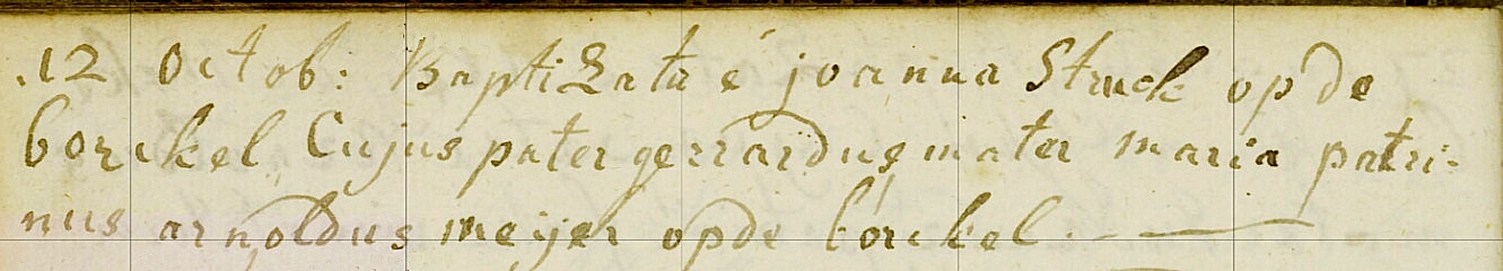 .12 Octob: Baptizata é joanna Struck opde
borckel Cujus pater gerrardus mater maria patri-
nus arnoldus meijer opde borckel.